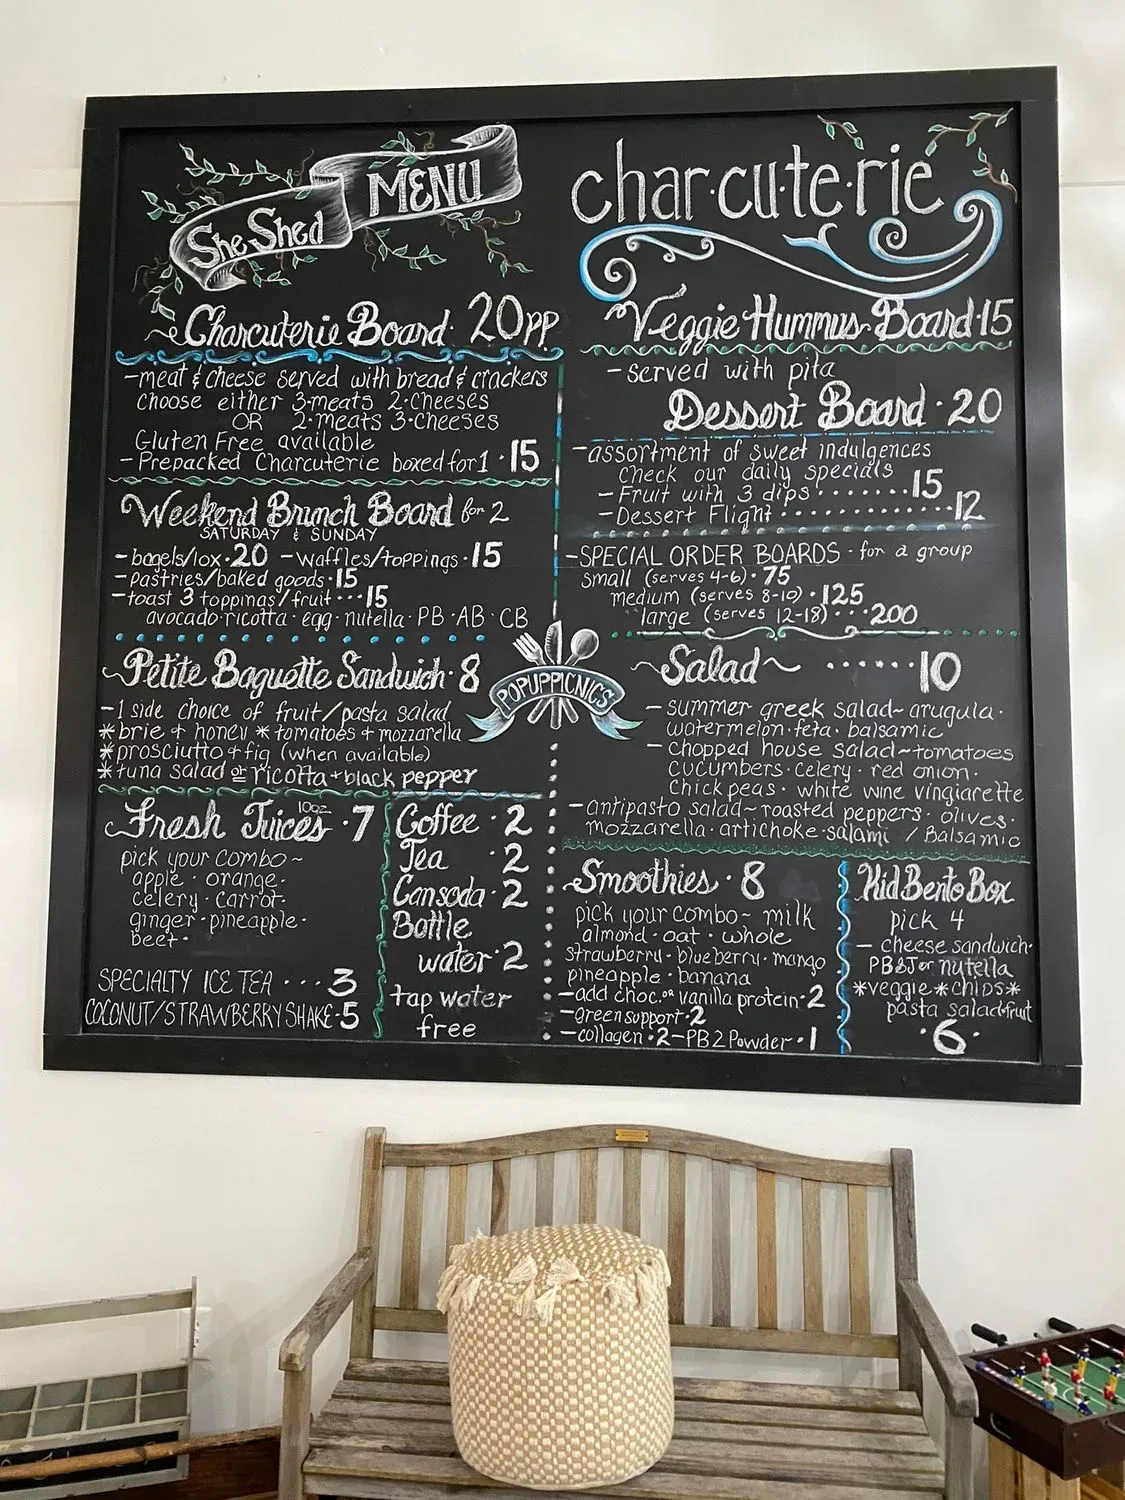 She Shed MENU
Charcuterie Board · 20pp
- meat & cheese served with bread & crackers
choose either 3·meats 2·cheeses
OR 2·meats 3·cheeses
Gluten Free available
- Prepacked Charcuterie boxed for 1 · 15
Weekend Brunch Board for 2
SATURDAY & SUNDAY
- bagels/lox · 20 - waffles/toppings · 15
- pastries/baked goods · 15
- toast 3 toppings/fruit ··· 15
avocado · ricotta · egg · nutella · PB · AB · CB
Petite Baguette Sandwich · 8
- 1 side choice of fruit/pasta salad
* brie & honey * tomatoes & mozzarella
* prosciutto & fig (when available)
* tuna salad or ricotta + black pepper
Fresh Juices 10oz · 7
pick your combo ~
apple · orange ·
celery · carrot ·
ginger · pineapple ·
beet ·
SPECIALTY ICE TEA ··· 3
COCONUT/STRAWBERRY SHAKE · 5
Coffee · 2
Tea · 2
Can soda · 2
Bottle
water · 2
tap water
free
POPUPPICNICS
char·cu·te·rie
Veggie Hummus Board · 15
- served with pita
Dessert Board · 20
- assortment of sweet indulgences
check our daily specials
- Fruit with 3 dips ······· 15
- Dessert Flight ············ 12
- SPECIAL ORDER BOARDS - for a group
small (serves 4-6) · 75
medium (serves 8-10) · 125
large (serves 12-18) ··· 200
~ Salad ~ ······ 10
- summer greek salad ~ arugula ·
watermelon · feta · balsamic
- chopped house salad ~ tomatoes
cucumbers · celery · red onion ·
chick peas · white wine vingiarette
- antipasto salad ~ roasted peppers · olives ·
mozzarella · artichoke · salami / Balsamic
Smoothies · 8
pick your combo ~ milk
almond · oat · whole
strawberry · blueberry · mango
pineapple · banana
- add choc. or vanilla protein · 2
- green support · 2
- collagen · 2 - PB2 Powder · 1
Kid Bento Box
pick 4
- cheese sandwich ·
PB&J or nutella
* veggie * chips *
pasta salad · fruit
· 6 ·